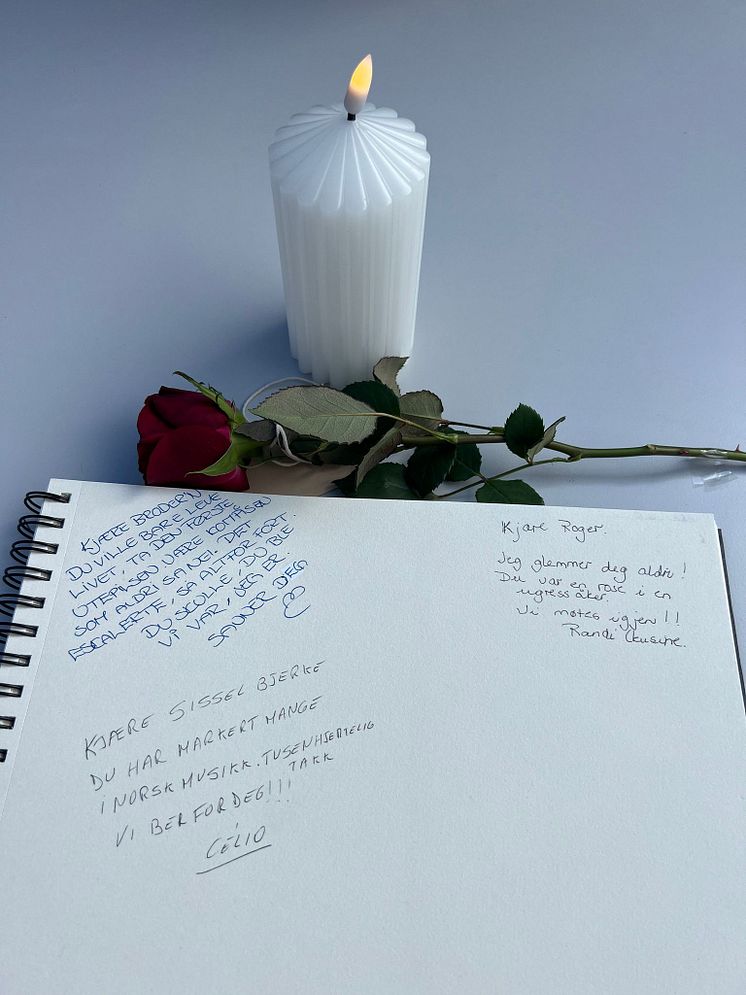 KJÆRE BRODER'N
DU VILLE BARE LEVE
LIVET, TA DEN FØRSTE
UTEPILSEN VÆRE KOMPISEN
SOM ALDRI SA NEI. DET
ESCALERTE, SÅ ALTFOR FORT.
DU SKULLE, DU BLE
VI VAR, JEG ER.
SAVNER DEG
KJÆRE SISSEL BJERKE
DU HAR MARKERT MANGE
I NORSK MUSIKK. TUSENHJERTELIG
TAKK
VI BER FOR DEG!!!
CÉLIO
Kjære Roger.
Jeg glemmer deg aldri!
Du var en rose i en
ugress åker.
Vi møtes igjen!!
Randi